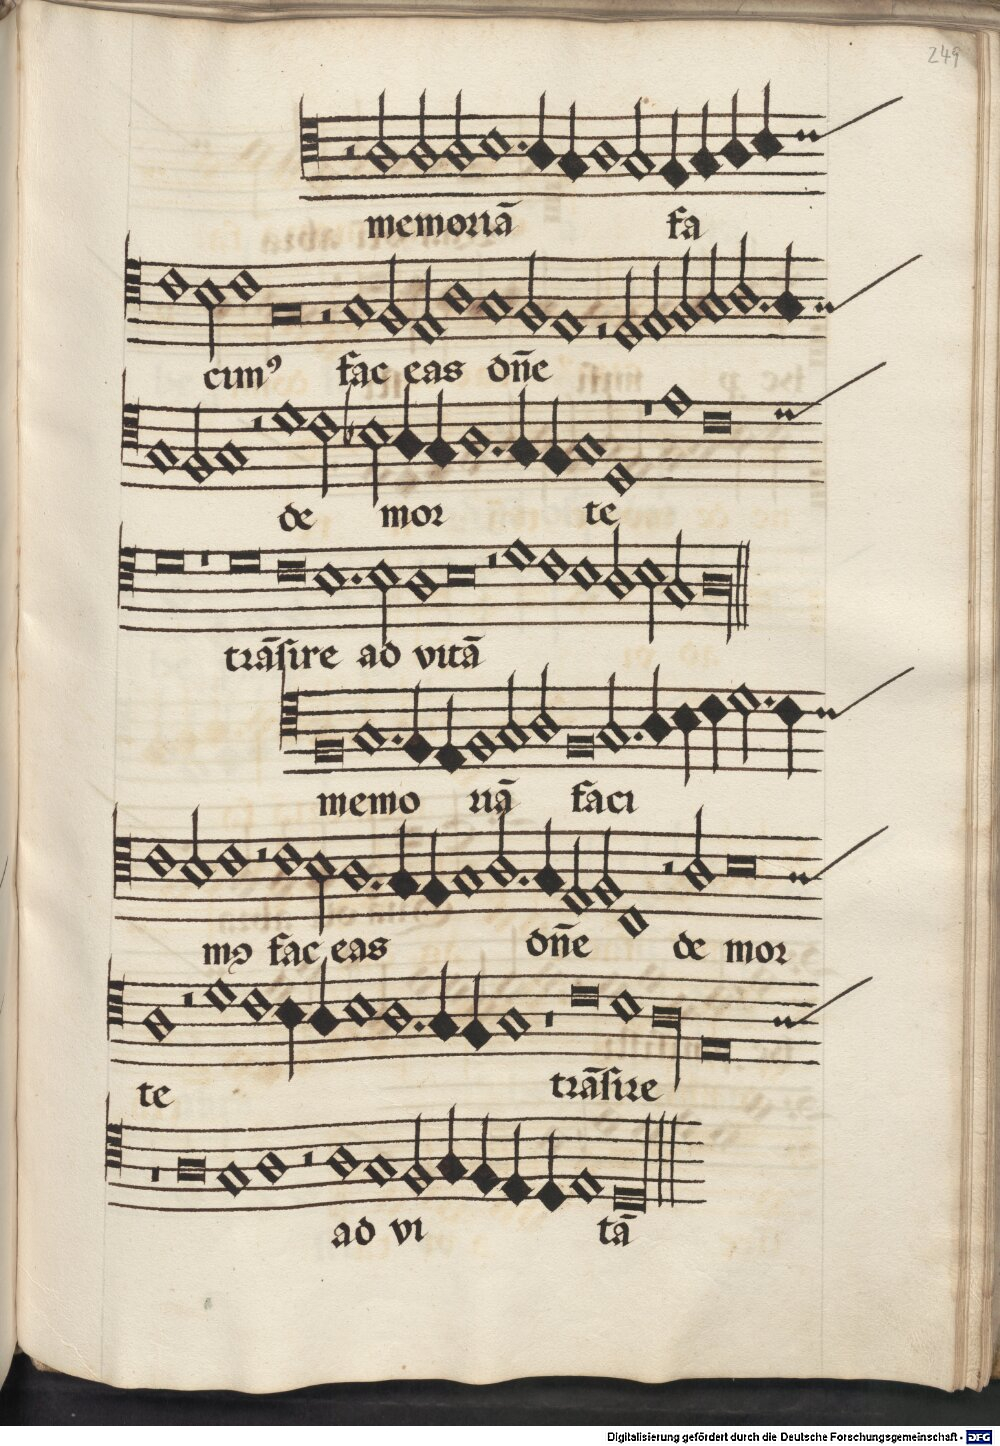 249
memoriā fa
cimꝰ fac eas dn̄e
de mor te
trāsire ad vitā
memo riā faci
mꝰ fac eas dn̄e de mor
te trāsire
ad vi tā
Digitalisierung gefördert durch die Deutsche Forschungsgemeinschaft - DFG